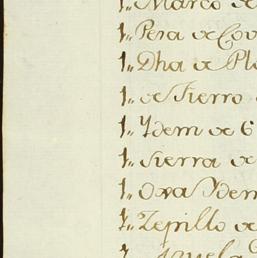 1,, Marco de
1,, Pesa de Cov
1,, Dha de Pl
1,, de Fierro
1,, Ydem de 6
1,, Sierra de
1,, Ova Ydem
1,, Zepillo de
1,, Azuela